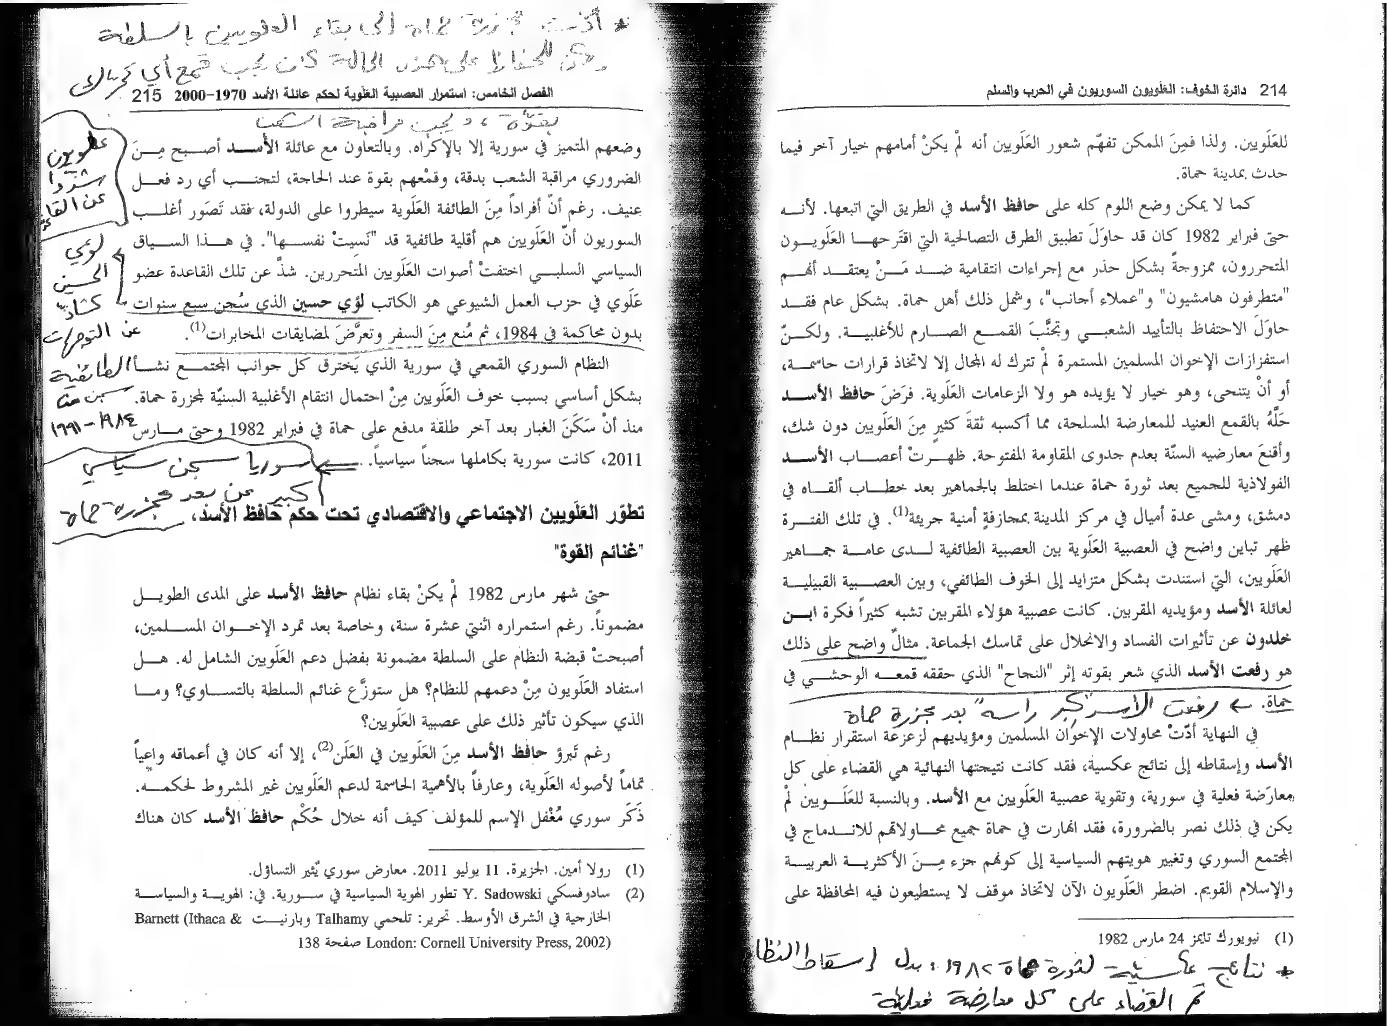 214 دائرة الخوف: العَلَويون السوريون في الحرب والسلم
للعَلَويين. ولذا فمِنَ الممكن تفهّم شعور العَلَويين أنه لمْ يكنْ أمامهم خيار آخر فيما
حدث بمدينة حماة.
كما لا يمكن وضع اللوم كله على حافظ الأسد في الطريق التي اتبعها. لأنــه
حتى فبراير 1982 كان قد حاوَلَ تطبيق الطرق التصالحية التي اقتَرحهـا العَلَويـون
المتحررون، ممزوجةً بشكل حذر مع إجراءات انتقامية ضـد مَـنْ يعتقـد أنهـم
"متطرفون هامشيون" و"عملاء أجانب"، وشمل ذلك أهل حماة. بشكل عام فقـد
حاوَلَ الاحتفاظ بالتأييد الشعبـي وتجنَّبَ القمع الصـارم للأغلبيـة. ولكـنّ
استفزازات الإخوان المسلمين المستمرة لمْ تترك له المجال إلا لاتخاذ قرارات حاسمـة،
أو أنْ يتنحى، وهو خيار لا يؤيده هو ولا الزعامات العَلَوية. فرَضَ حافظ الأسـد
حَلَّهُ بالقمع العنيد للمعارضة المسلحة، مما أكسبه ثقةَ كثيرٍ مِنَ العَلَويين دون شك،
وأقنَعَ معارضيه السنّة بعدم جدوى المقاومة المفتوحة. ظهـرتْ أعصـاب الأسـد
الفولاذية للجميع بعد ثورة حماة عندما اختلط بالجماهير بعد خطـاب ألقـاه في
دمشق، ومشى عدة أميال في مركز المدينة بمجازفةٍ أمنية جريئة(1). في تلك الفتـرة
ظهر تباين واضح في العصبية العَلَوية بين العصبية الطائفية لـدى عامـة جمـاهير
العَلَويين، التي استندت بشكل متزايد إلى الخوف الطائفي، وبين العصـبية القبيليـة
لعائلة الأسد ومؤيديه المقربين. كانت عصبية هؤلاء المقربين تشبه كثيراً فكرة ابـن
خلدون عن تأثيرات الفساد والانحلال على تماسك الجماعة. مثالٌ واضح على ذلك
هو رفعت الأسد الذي شعر بقوته إثر "النجاح" الذي حققه قمعـه الوحشـي في
حماة. ← رفعت الأسد "كبر راسه" بعد مجزرة حماة
في النهاية أدّتْ محاولات الإخوان المسلمين ومؤيديهم لزعزعة استقرار نظـام
الأسد وإسقاطه إلى نتائج عكسية، فقد كانت نتيجتها النهائية هي القضاء على كل
معارَضة فعلية في سورية، وتقوية عصبية العَلَويين مع الأسد. وبالنسبة للعَلَـويين لمْ
يكن في ذلك نصر بالضرورة، فقد انهارت في حماة جميع محـاولاتهم للانـدماج في
المجتمع السوري وتغيير هويتهم السياسية إلى كونهم جزء مِـنَ الأكثريـة العربيـة
والإسلام القويم. اضطر العَلَويون الآن لاتخاذ موقف لا يستطيعون فيه المحافظة على
(1) نيويورك تايمز 24 مارس 1982
* نتائج عكسية لثورة حماة ١٩٨٢: بدل إسقاط النظام
تم القضاء على كل معارضة فعلية
* أدت مجزرة حماة إلى بقاء العلويين بالسلطة
للحفاظ على هذه الحالة كان يجب قمع أي تحرك
الفصل الخامس: استمرار العصبية العَلَوية لحكم عائلة الأسد 1970–2000 215
بقوّة، ويجب مراقبة الشعب
وضعهم المتميز في سورية إلا بالإكراه. وبالتعاون مع عائلة الأسـد أصـبح مِـنَ
الضروري مراقبة الشعب بدقة، وقمْعهم بقوة عند الحاجة، لتجنـب أي رد فعـل
عنيف. رغم أنّ أفراداً مِنَ الطائفة العَلَوية سيطروا على الدولة، فقد تَصَور أغلـب
السوريون أنّ العَلَويين هم أقلية طائفية قد "نَسِيتْ نفسـها". في هـذا السـياق
السياسي السلبـي اختفتْ أصوات العَلَويين المتحررين. شذَّ عن تلك القاعدة عضو
عَلَوي في حزب العمل الشيوعي هو الكاتب لؤي حسين الذي سُجن سبع سنوات
بدون محاكمة في 1984، ثم مُنع مِنَ السفر وتعرَّضَ لمضايقات المخابرات(1).
علويون
شذوا
عن القاعدة
لؤي
الحسين
كشاذ
عن التوجهات
الطائفية
سجن من
١٩٨٤-١٩٩١
النظام السوري القمعي في سورية الذي يَخترق كل جوانب المجتمـع نشـأ
بشكل أساسي بسبب خوف العَلَويين مِنْ احتمال انتقام الأغلبية السنيّة لمجزرة حماة.
منذ أنْ سَكَنَ الغبار بعد آخر طلقة مدفع على حماة في فبراير 1982 وحتى مـارس
2011، كانت سورية بكاملها سجناً سياسياً.
← سوريا سجن سياسي
كبير من بعد مجزرة حماة
تطوّر العَلَويين الاجتماعي والاقتصادي تحت حكم حافظ الأسد،
"غنائم القوة"
حتى شهر مارس 1982 لمْ يكنْ بقاء نظام حافظ الأسد على المدى الطويـل
مضموناً. رغم استمراره اثنتي عشرة سنة، وخاصة بعد تمرد الإخـوان المسـلمين،
أصبحتْ قبضة النظام على السلطة مضمونة بفضل دعم العَلَويين الشامل له. هـل
استفاد العَلَويون مِنْ دعمهم للنظام؟ هل ستوزَّع غنائم السلطة بالتساوي؟ ومـا
الذي سيكون تأثير ذلك على عصبية العَلَويين؟
رغم تَبرؤ حافظ الأسد مِنَ العَلَويين في العَلَن(2)، إلا أنه كان في أعماقه واعياً
تماماً لأصوله العَلَوية، وعارفاً بالأهمية الحاسمة لدعم العَلَويين غير المشروط لحكمـه.
ذَكَر سوري مُغْفل الإسم للمؤلف كيف أنه خلال حُكْم حافظ الأسد كان هناك
(1) رولا أمين. الجزيرة. 11 يوليو 2011. معارض سوري يُثير التساؤل.
(2) سادوفسكي Y. Sadowski تطور الهوية السياسية في سـورية. في: الهويـة والسياسـة
الخارجية في الشرق الأوسط. تحرير: تلحمي Talhamy وبارنيـت Barnett (Ithaca &
London: Cornell University Press, 2002) صفحة 138